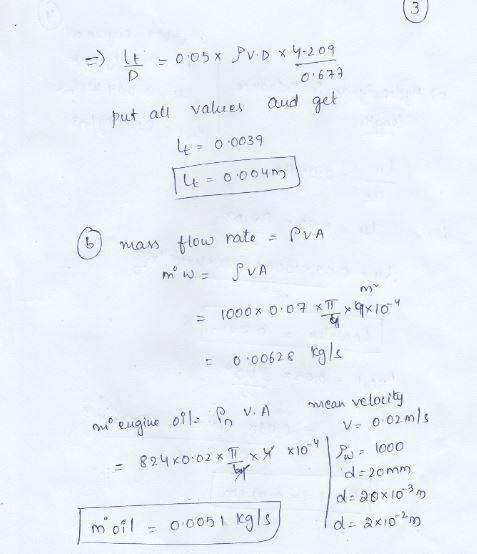 3
=) Lt/D = 0.05 x ρV.D x 4.209/0.677
put all values and get
Lt = 0.0039
Lt = 0.004m
b mass flow rate = ρVA
m° w = ρVA
= 1000 x 0.07 x π/4 x 4 x 10⁻⁴ m²
= 0.00628 kg/s
m° engine oil = ρn V.A
= 824 x 0.02 x π/4 x 4 x 10⁻⁴
m° oil = 0.0051 kg/s
mean velocity
V = 0.02 m/s
ρw = 1000
d = 20mm
d = 20 x 10⁻³ m
d = 2 x 10⁻² m